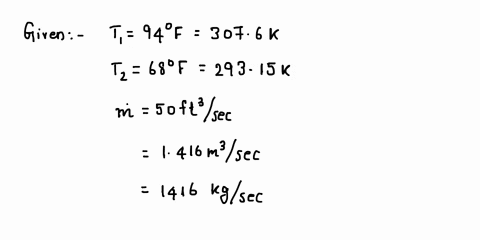 Given:- T₁ = 94°F = 307.6 K
T₂ = 68°F = 293.15 K
ṁ = 50 ft³/sec
= 1.416 m³/sec
= 1416 kg/sec